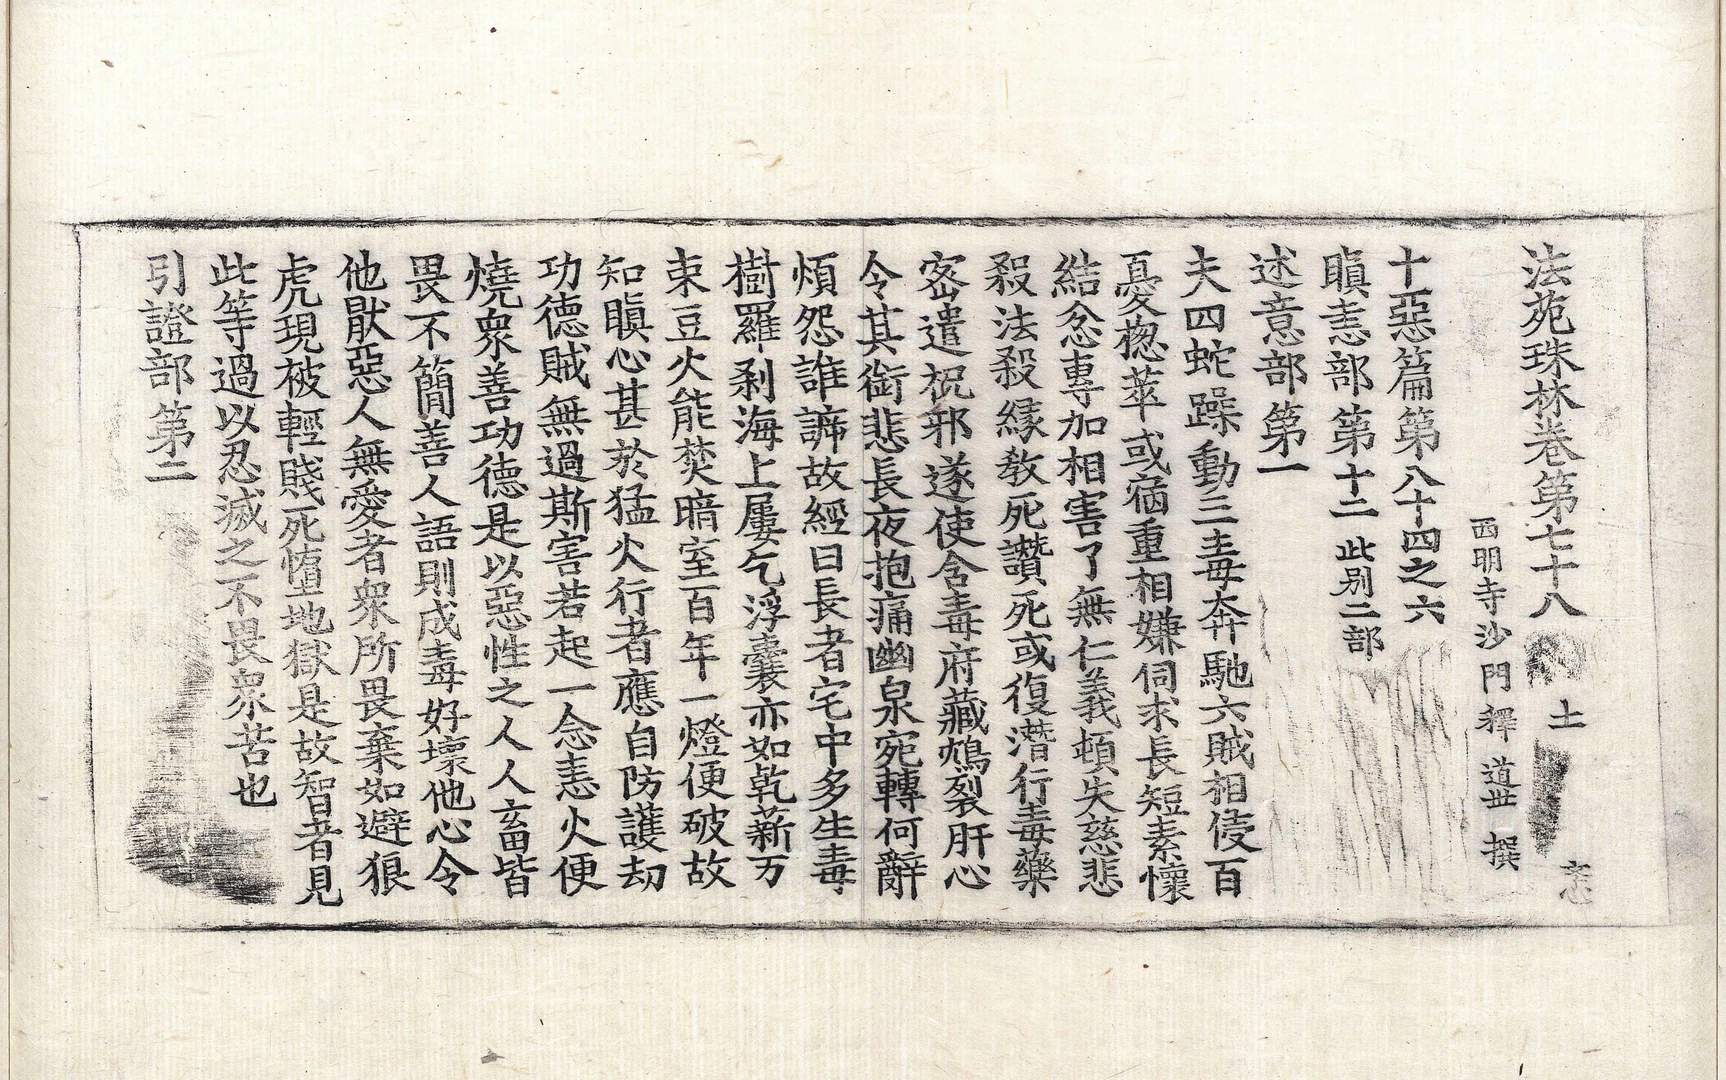 法苑珠林卷第七十八 士
西明寺沙門釋 道世 撰
十惡篇第八十四之六
瞋恚部第十二 此别二部
述意部第一
夫四蛇躁動三毒奔馳六賊相侵百
憂揔萃或宿重相嫌伺求長短素懷
結忿專加相害了無仁義頓失慈悲
殺法殺緣教死讚死或復潛行毒藥
密遣祝邪遂使含毒府藏鴆裂肝心
令其銜悲長夜抱痛幽泉宛轉何辭
煩怨誰諦故經曰長者宅中多生毒
樹羅刹海上屢乞浮囊亦如乾薪万
束豆火能焚暗室百年一燈便破故
知瞋心甚於猛火行者應自防護劫
功德賊無過斯害若起一念恚火便
燒衆善功德是以惡性之人人畜皆
畏不簡善人語則成毒好壞他心令
他猒惡人無愛者衆所畏棄如避狼
虎現被輕賤死墮地獄是故智者見
此等過以忍滅之不畏衆苦也
引證部第二